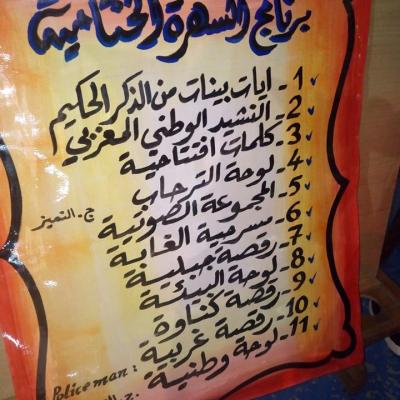 برنامج السهرة الختامية
1- ايات بينات من الذكر الحكيم
2- النشيد الوطني المغربي
3- كلمات افتتاحية
4- لوحة الترحاب
5- المجموعة الصوتية
ج. التميز
6- مسرحية الغابة
7- رقصة جبلية
8- لوحة البيئة
9- رقصة كناوة
10- رقصة غربية
Policeman:
11- لوحة وطنية